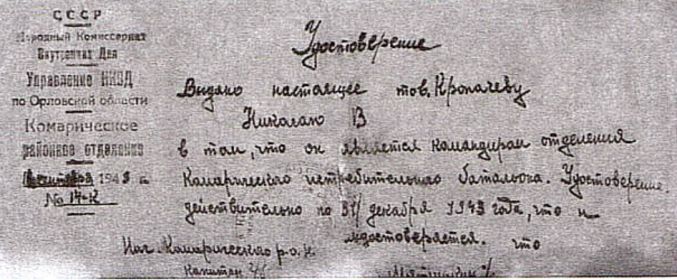 СССР
Народный Комиссариат
Внутренних Дел
Управление НКВД
по Орловской области
Комарическое
районное отделение
1943 г.
№ 14-К
Удостоверение
Выдано настоящее тов. Кропачеву
Николаю В
в том, что он является командиром отделения
Комарического истребительного батальона. Удостоверение
действительно по 31/ декабря 1943 года, что и
удостоверяется. что
Нач. Комарического р.о.Н
Капитан